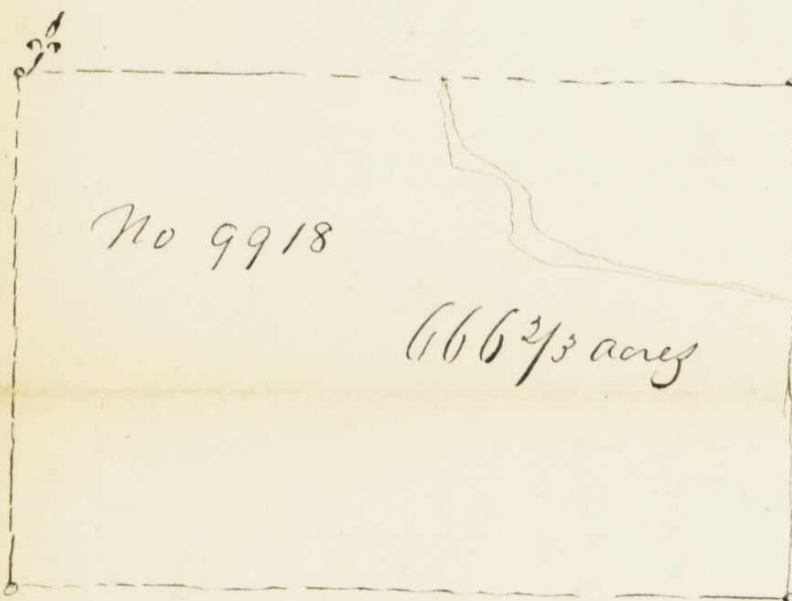 No 9918
666 2/3 acres